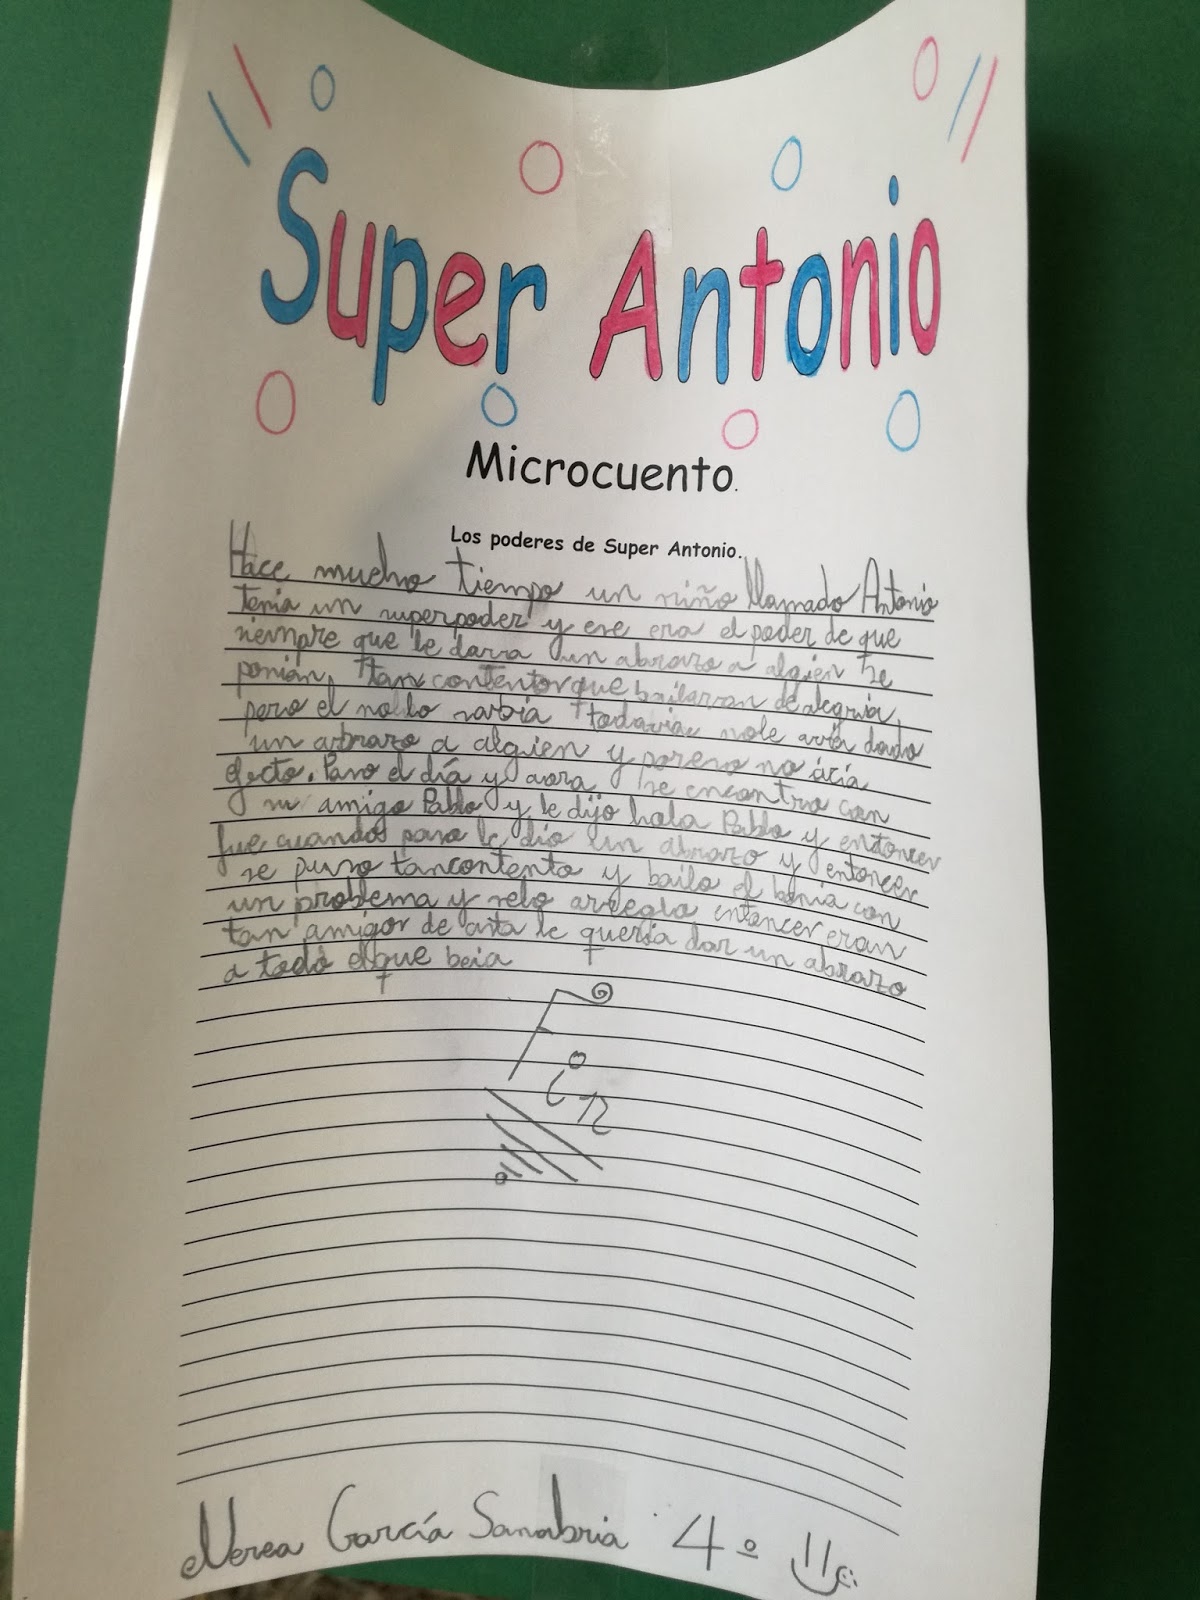 Super Antonio
Microcuento.
Los poderes de Super Antonio.
Hace mucho tiempo un niño llamado Antonio
tenia un superpoder y ese era el poder de que
siempre que le dava un abrazo a algien se
ponian tan contentos que bailavan de alegria,
pero el no lo savia todavia nole avia dado
un abrazo a algien y poreso no acía
efecto. Paso el día y aora se encontro con
su amigo Pablo y le dijo hola Pablo y entonces
fue cuando paso le dio un abrazo y entonces
se puso tancontento y bailo el benia con
un problema y selo arreglo entonces eran
tan amigos de asta le queria dar un abrazo
a todo elque beia
Fin
Nerea García Sanabria 4º